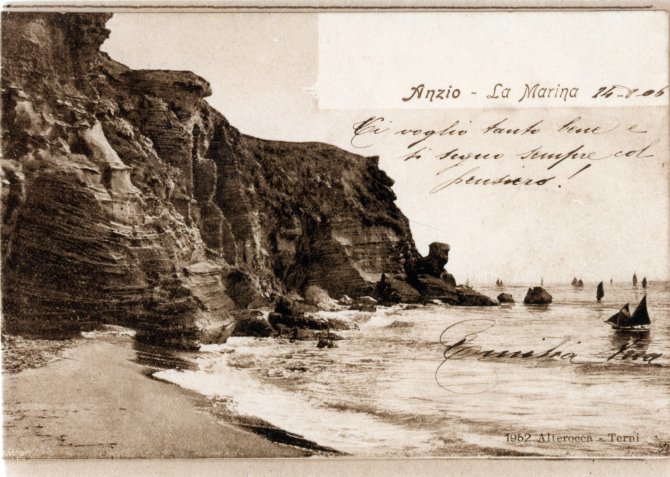 Anzio - La Marina 24-8-06
Ti voglio tanto bene e
ti seguo sempre col
pensiero!
Emilia tua
1952 Alterocca - Terni